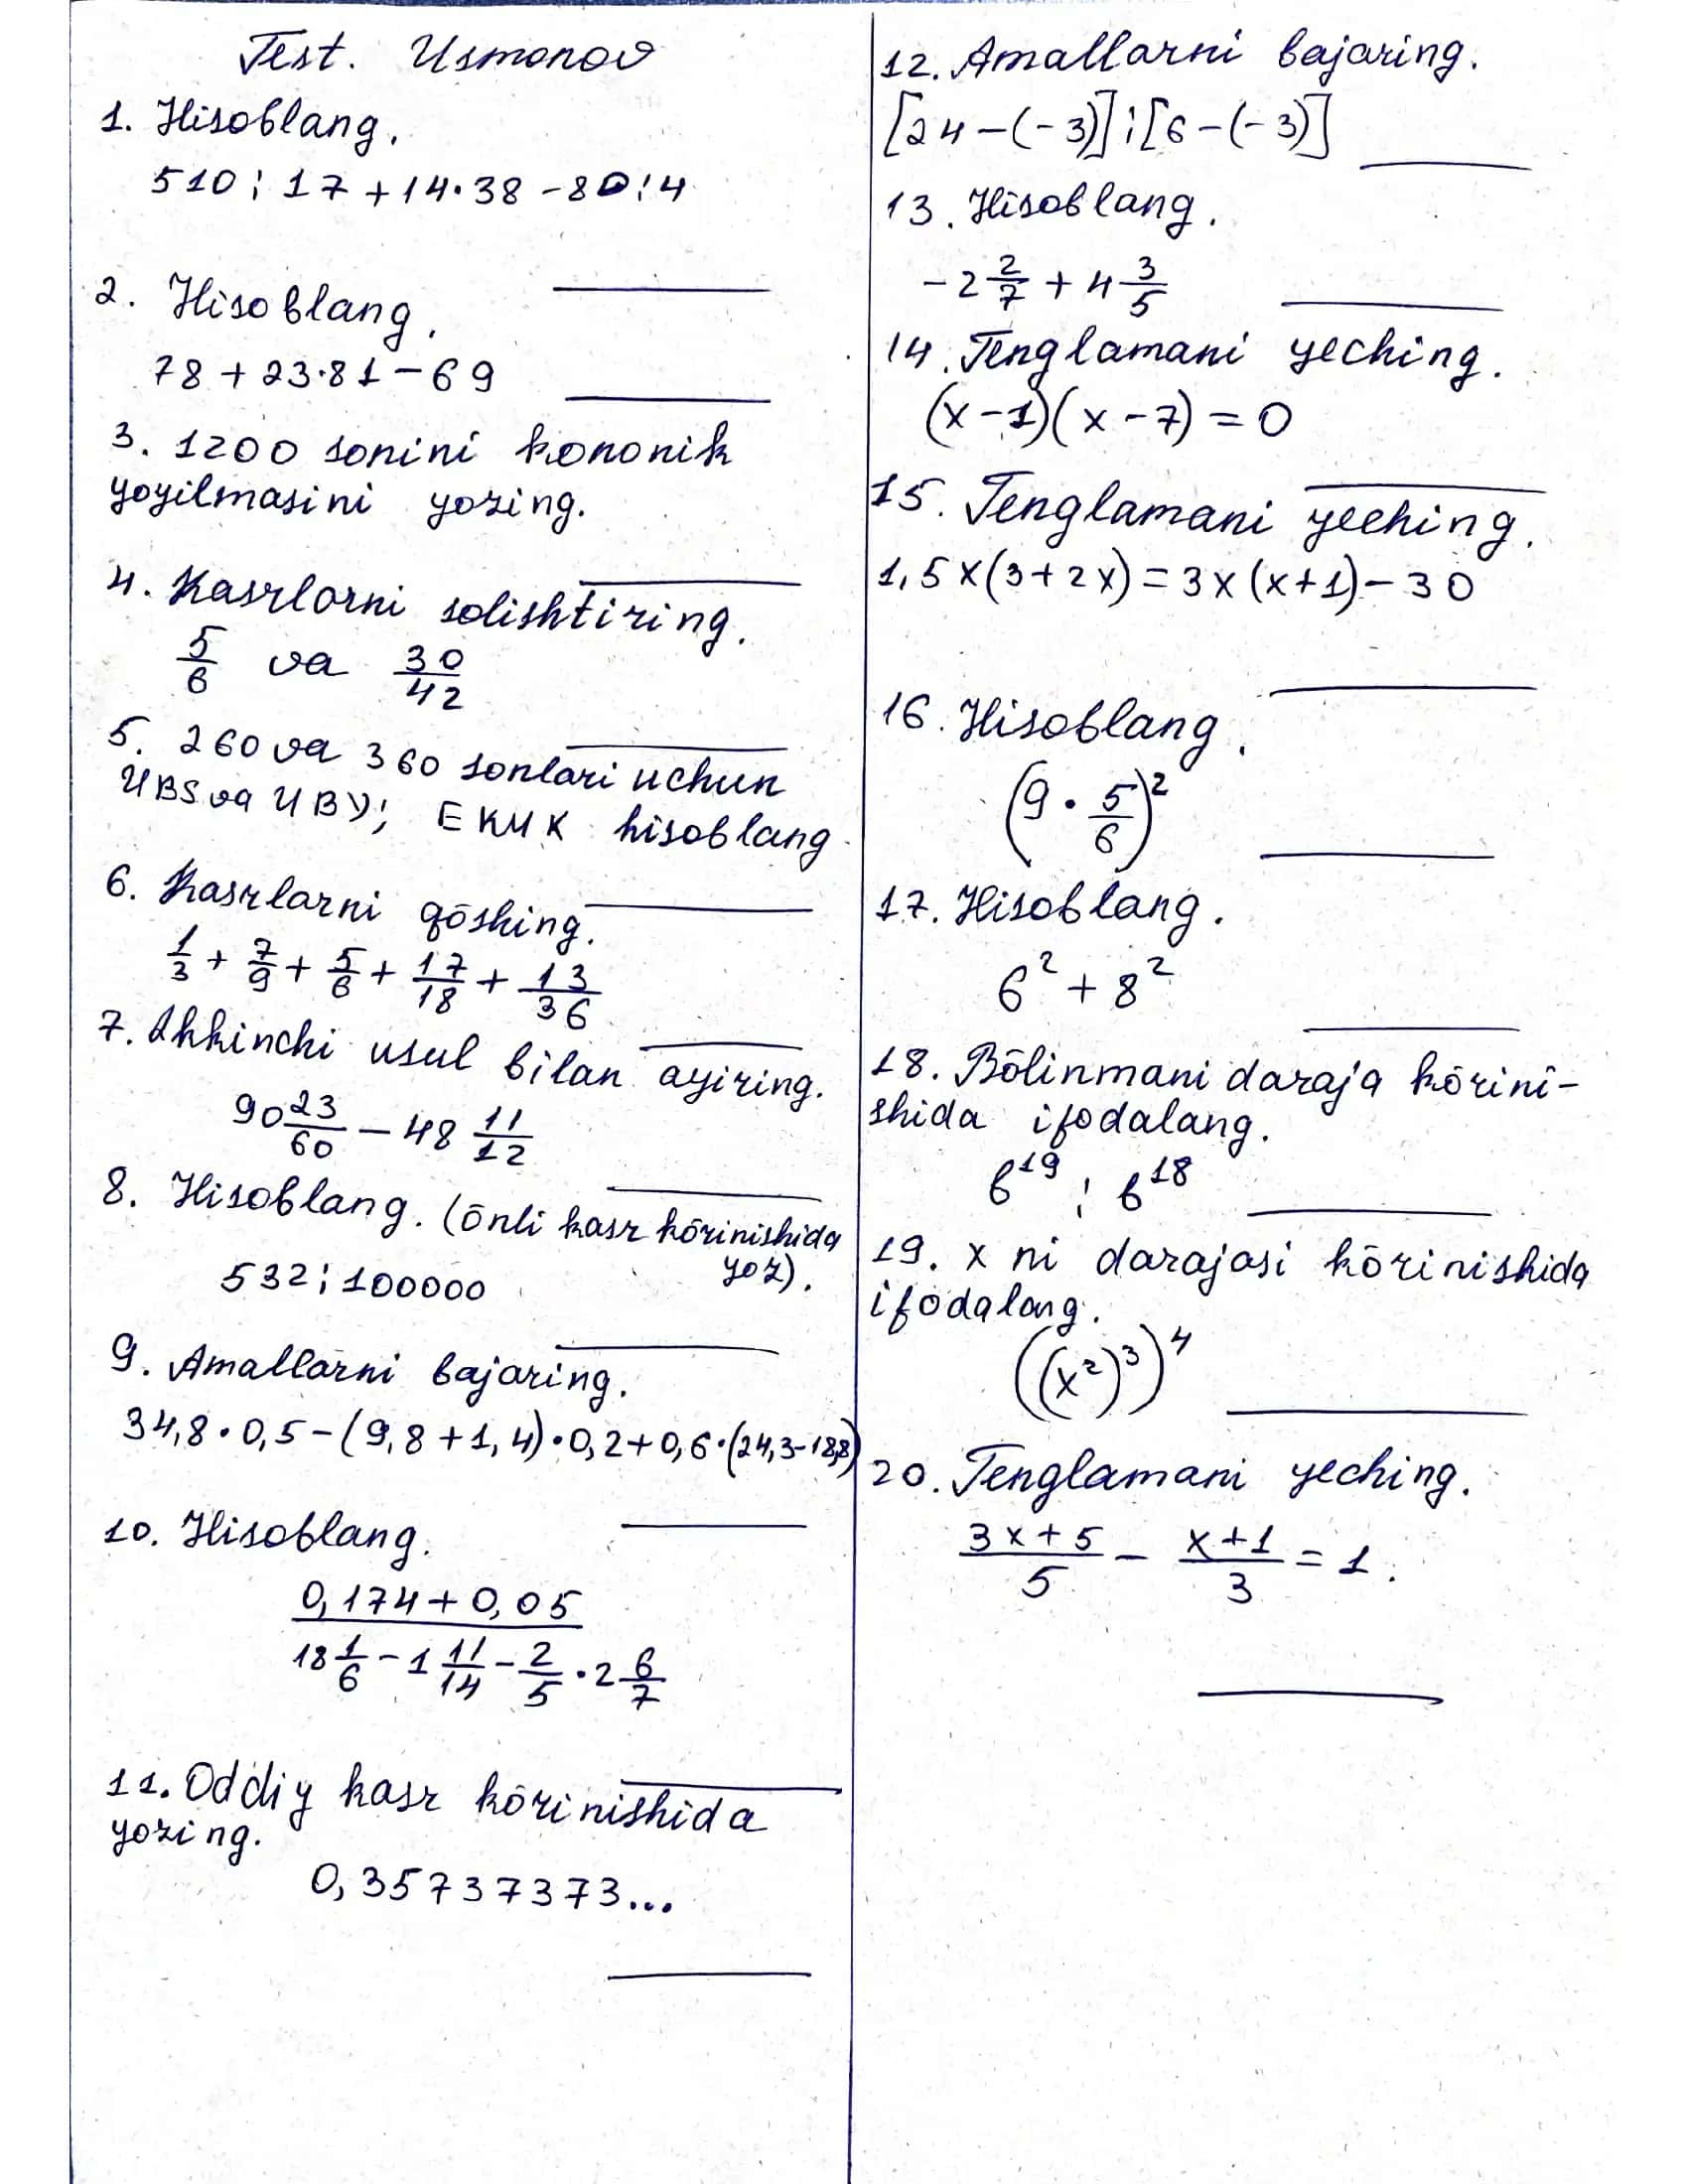 Test. Usmonov
1. Hisoblang.
510 : 17 + 14 · 38 - 80 : 4
2. Hisoblang.
78 + 23 · 81 - 69
3. 1200 sonini kononik
yoyilmasini yozing.
4. Kasrlarni solishtiring.
5/6 va 30/42
5. 260 va 360 sonlari uchun
UBS va UBY; EKUK hisoblang
6. Kasrlarni qōshing.
1/3 + 7/9 + 5/6 + 17/18 + 13/36
7. Ikkinchi usul bilan ayiring.
90 23/60 - 48 11/12
8. Hisoblang. (ōnli kasr kōrinishida
yoz).
532 : 100000
9. Amallarni bajaring.
34,8 · 0,5 - (9,8 + 1,4) · 0,2 + 0,6 · (24,3 - 18,8)
10. Hisoblang.
0,174 + 0,05
18 1/6 - 1 11/14 - 2/5 · 2 6/7
11. Oddiy kasr kōrinishida
yozing.
0,35737373...
12. Amallarni bajaring.
[24 - (-3)] : [6 - (-3)]
13. Hisoblang.
-2 2/7 + 4 3/5
14. Tenglamani yeching.
(x - 1)(x - 7) = 0
15. Tenglamani yeching.
1,5x(3 + 2x) = 3x(x + 1) - 30
16. Hisoblang.
(9 · 5/6)²
17. Hisoblang.
6² + 8²
18. Bōlinmani daraja kōrini-
shida ifodalang.
b¹⁹ : b¹⁸
19. x ni darajasi kōrinishida
ifodalang.
((x²)³)⁴
20. Tenglamani yeching.
(3x + 5)/5 - (x + 1)/3 = 1.